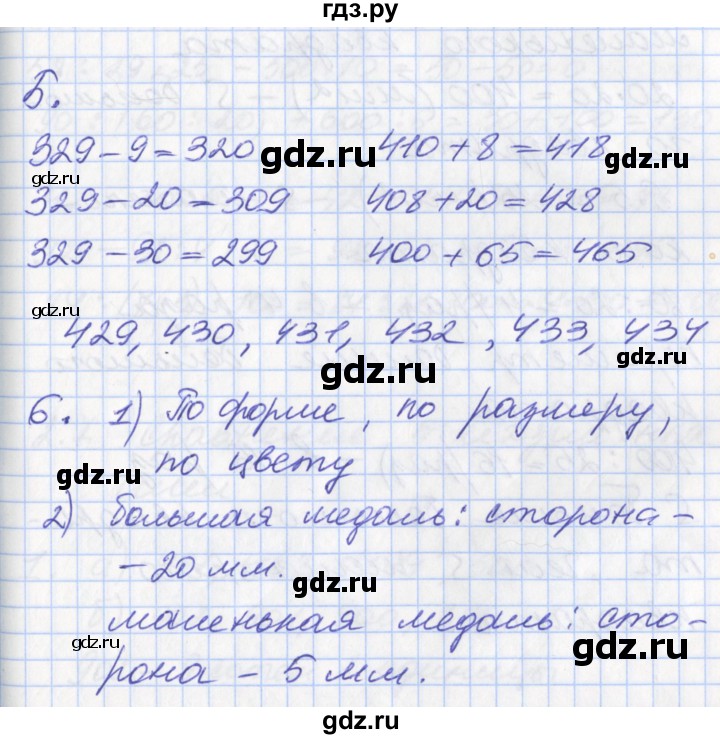 гдз.ру
Б.
329 - 9 = 320 410 + 8 = 418
329 - 20 = 309 408 + 20 = 428
329 - 30 = 299 400 + 65 = 465
429, 430, 431, 432, 433, 434
6. 1) По форме, по размеру,
по цвету
2) большая медаль: сторона -
- 20 мм.
маленькая медаль: сто-
рона - 5 мм.
gdz.ru
gdz.ru
gdz.ru
gdz.ru
gdz.ru
gdz.ru
gdz.ru
gdz.ru
gdz.ru
gdz.ru
gdz.ru